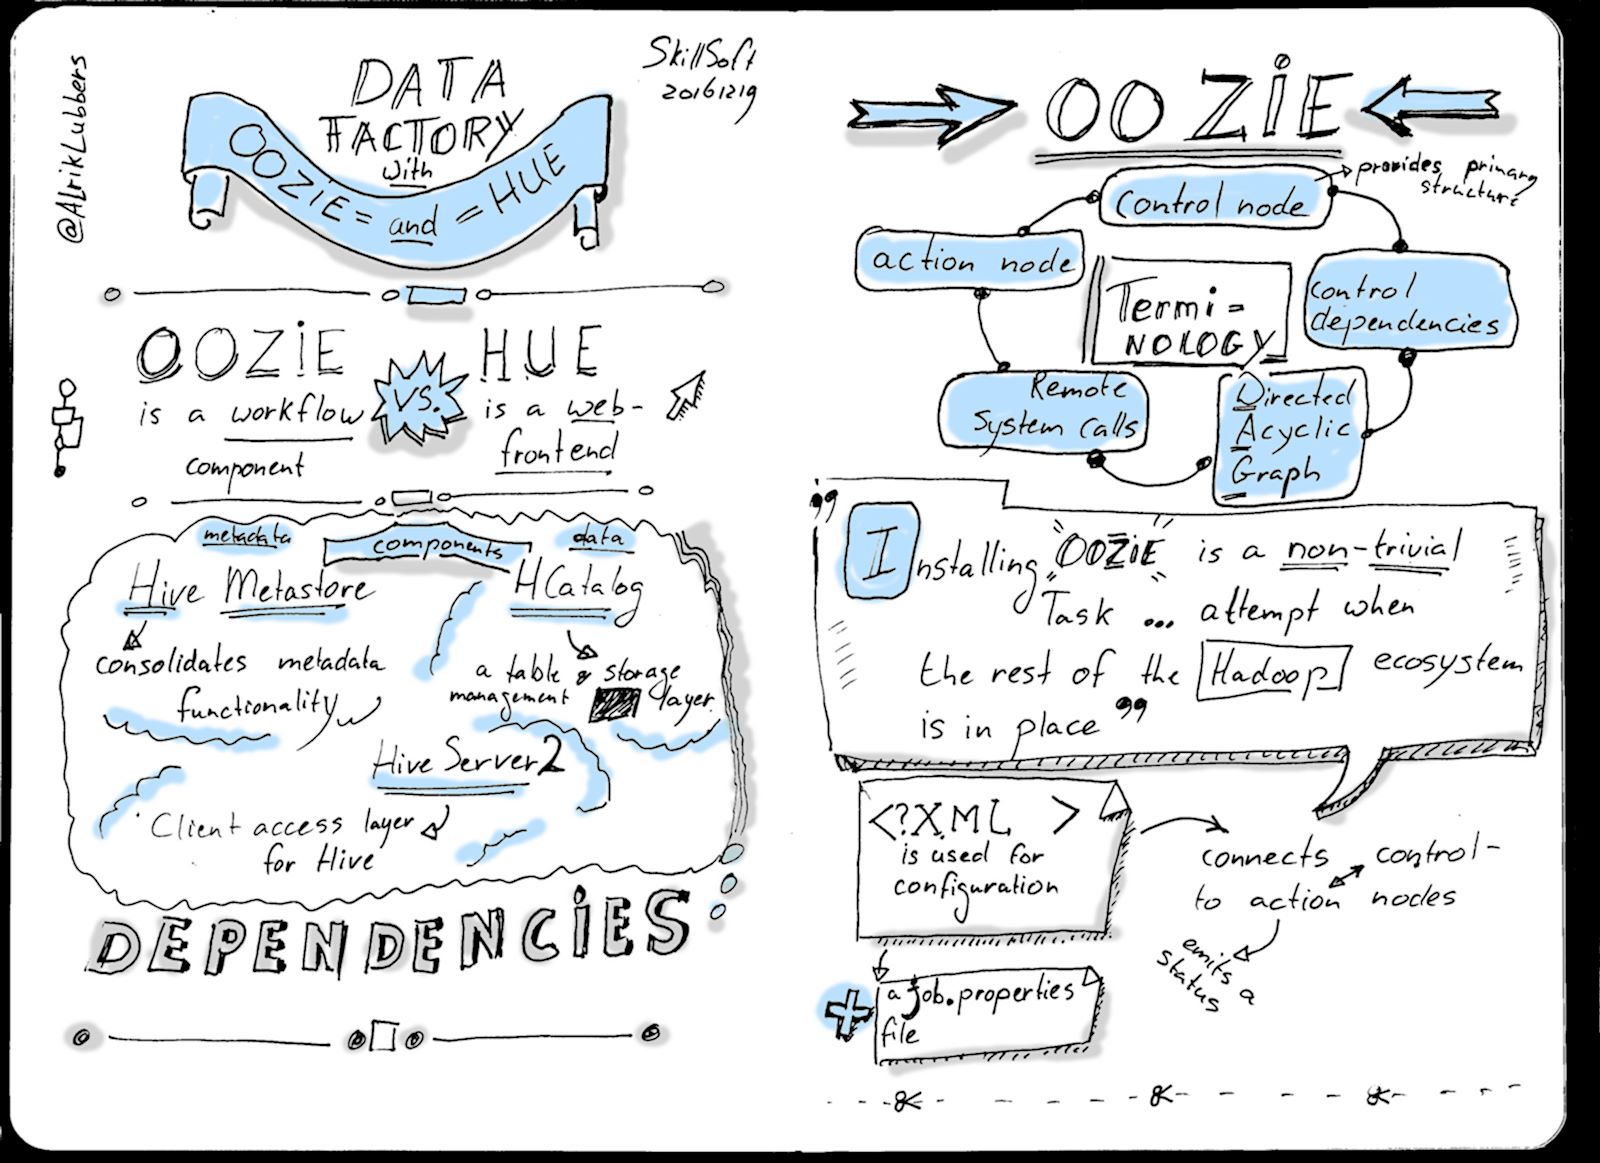 @AlrikLubbers
SkillSoft
20161219
DATA
FACTORY
with
OOZIE = and = HUE
OOZiE
is a workflow
component
VS.
HUE
is a web-
frontend
components
metadata
Hive Metastore
consolidates metadata
functionality
data
HCatalog
a table & storage
management layer
Hive Server2
Client access layer
for Hive
DEPENDENCiES
OOZiE
control node
provides primary
structure
action node
control
dependencies
Termi-
NOLOGY
Remote
System calls
Directed
Acyclic
Graph
"
Installing "OOZiE" is a non-trivial
Task ... attempt when
the rest of the Hadoop ecosystem
is in place "
<?XML >
is used for
configuration
connects control-
to action nodes
emits a
status
+ a job.properties
file